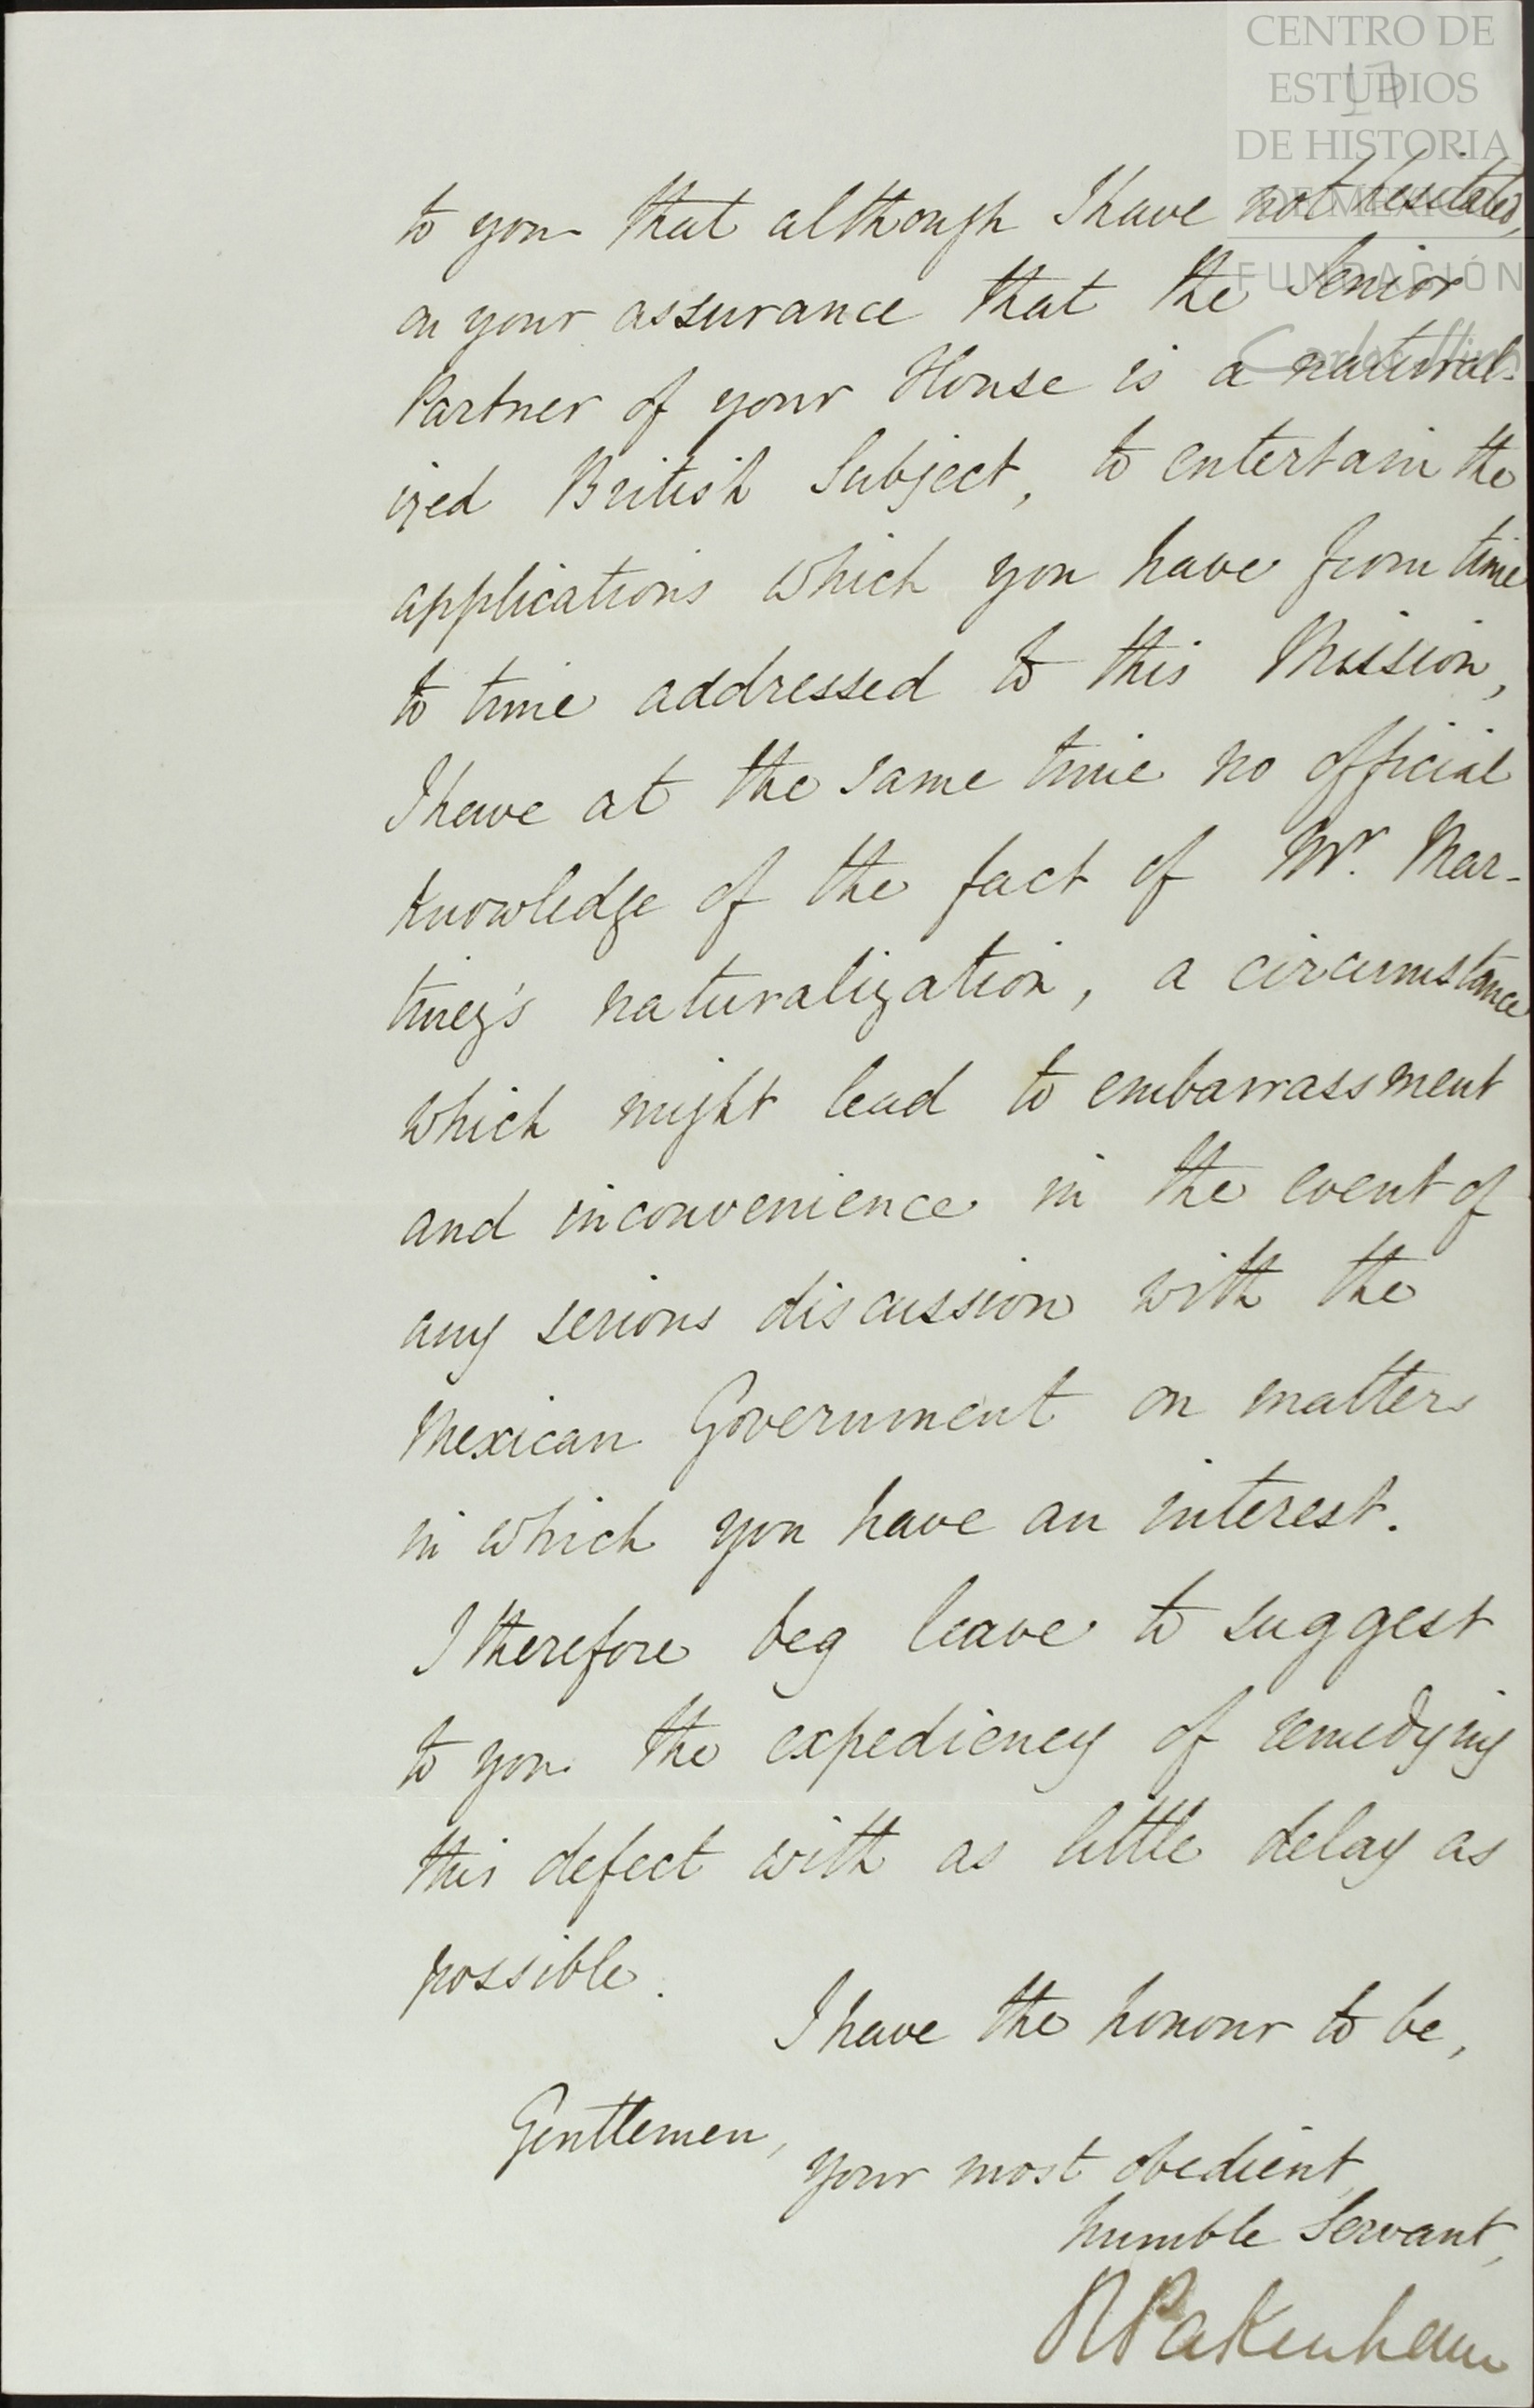 CENTRO DE
ESTUDIOS
17
DE HISTORIA
DE MÉXICO
FUNDACIÓN
Carlos Slim
to you that although I have not hesitated,
on your assurance that the Senior
Partner of your House is a natural-
ized British Subject, to entertain the
applications which you have from time
to time addressed to this Mission,
I have at the same time no official
knowledge of the fact of Mr. Mar-
tinez's naturalization, a circumstance
which might lead to embarrassment
and inconvenience in the event of
any serious discussion with the
Mexican Government on matters
in which you have an interest.
I therefore beg leave to suggest
to you the expediency of remedying
this defect with as little delay as
possible.
I have the honour to be,
Gentlemen,
your most obedient,
humble Servant,
R Pakenham